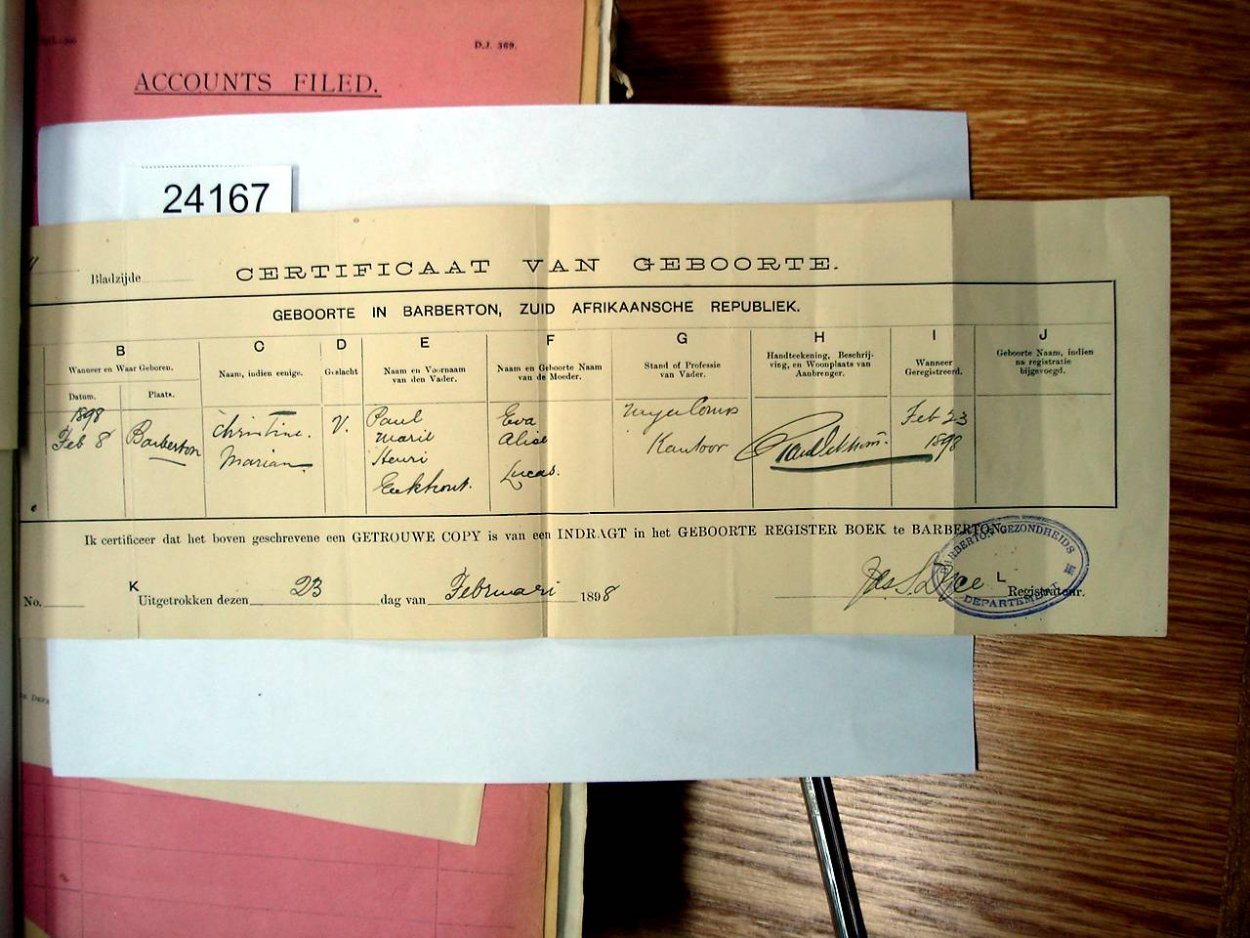 D.J. 369.
ACCOUNTS FILED.
24167
Bladzijde
CERTIFICAAT VAN GEBOORTE.
GEBOORTE IN BARBERTON, ZUID AFRIKAANSCHE REPUBLIEK.
B C D E F G H I J
Wanneer en Waar Geboren.
Datum. Plaats.
Naam, indien eenige.
Geslacht
Naam en Voornaam
van den Vader.
Naam en Geboorte Naam
van de Moeder.
Stand of Professie
van Vader.
Handteekening, Beschrij-
ving, en Woonplaats van
Aanbrenger.
Wanneer
Geregistreerd.
Geboorte Naam, indien
na registratie
bijgevoegd.
1898
Feb 8
Barberton
Christine.
Marian
V.
Paul
Marie
Henri
Eekhout.
Eva
Alise
Lucas.
Kantoor
Feb 23
1898
Ik certificeer dat het boven geschrevene een GETROUWE COPY is van een INDRAGT in het GEBOORTE REGISTER BOEK te BARBERTON
No. K Uitgetrokken dezen 23 dag van Februari 1898
Jas. S. Dyce L Registrateur.
BARBERTON GEZONDHEIDS
DEPARTEMENT